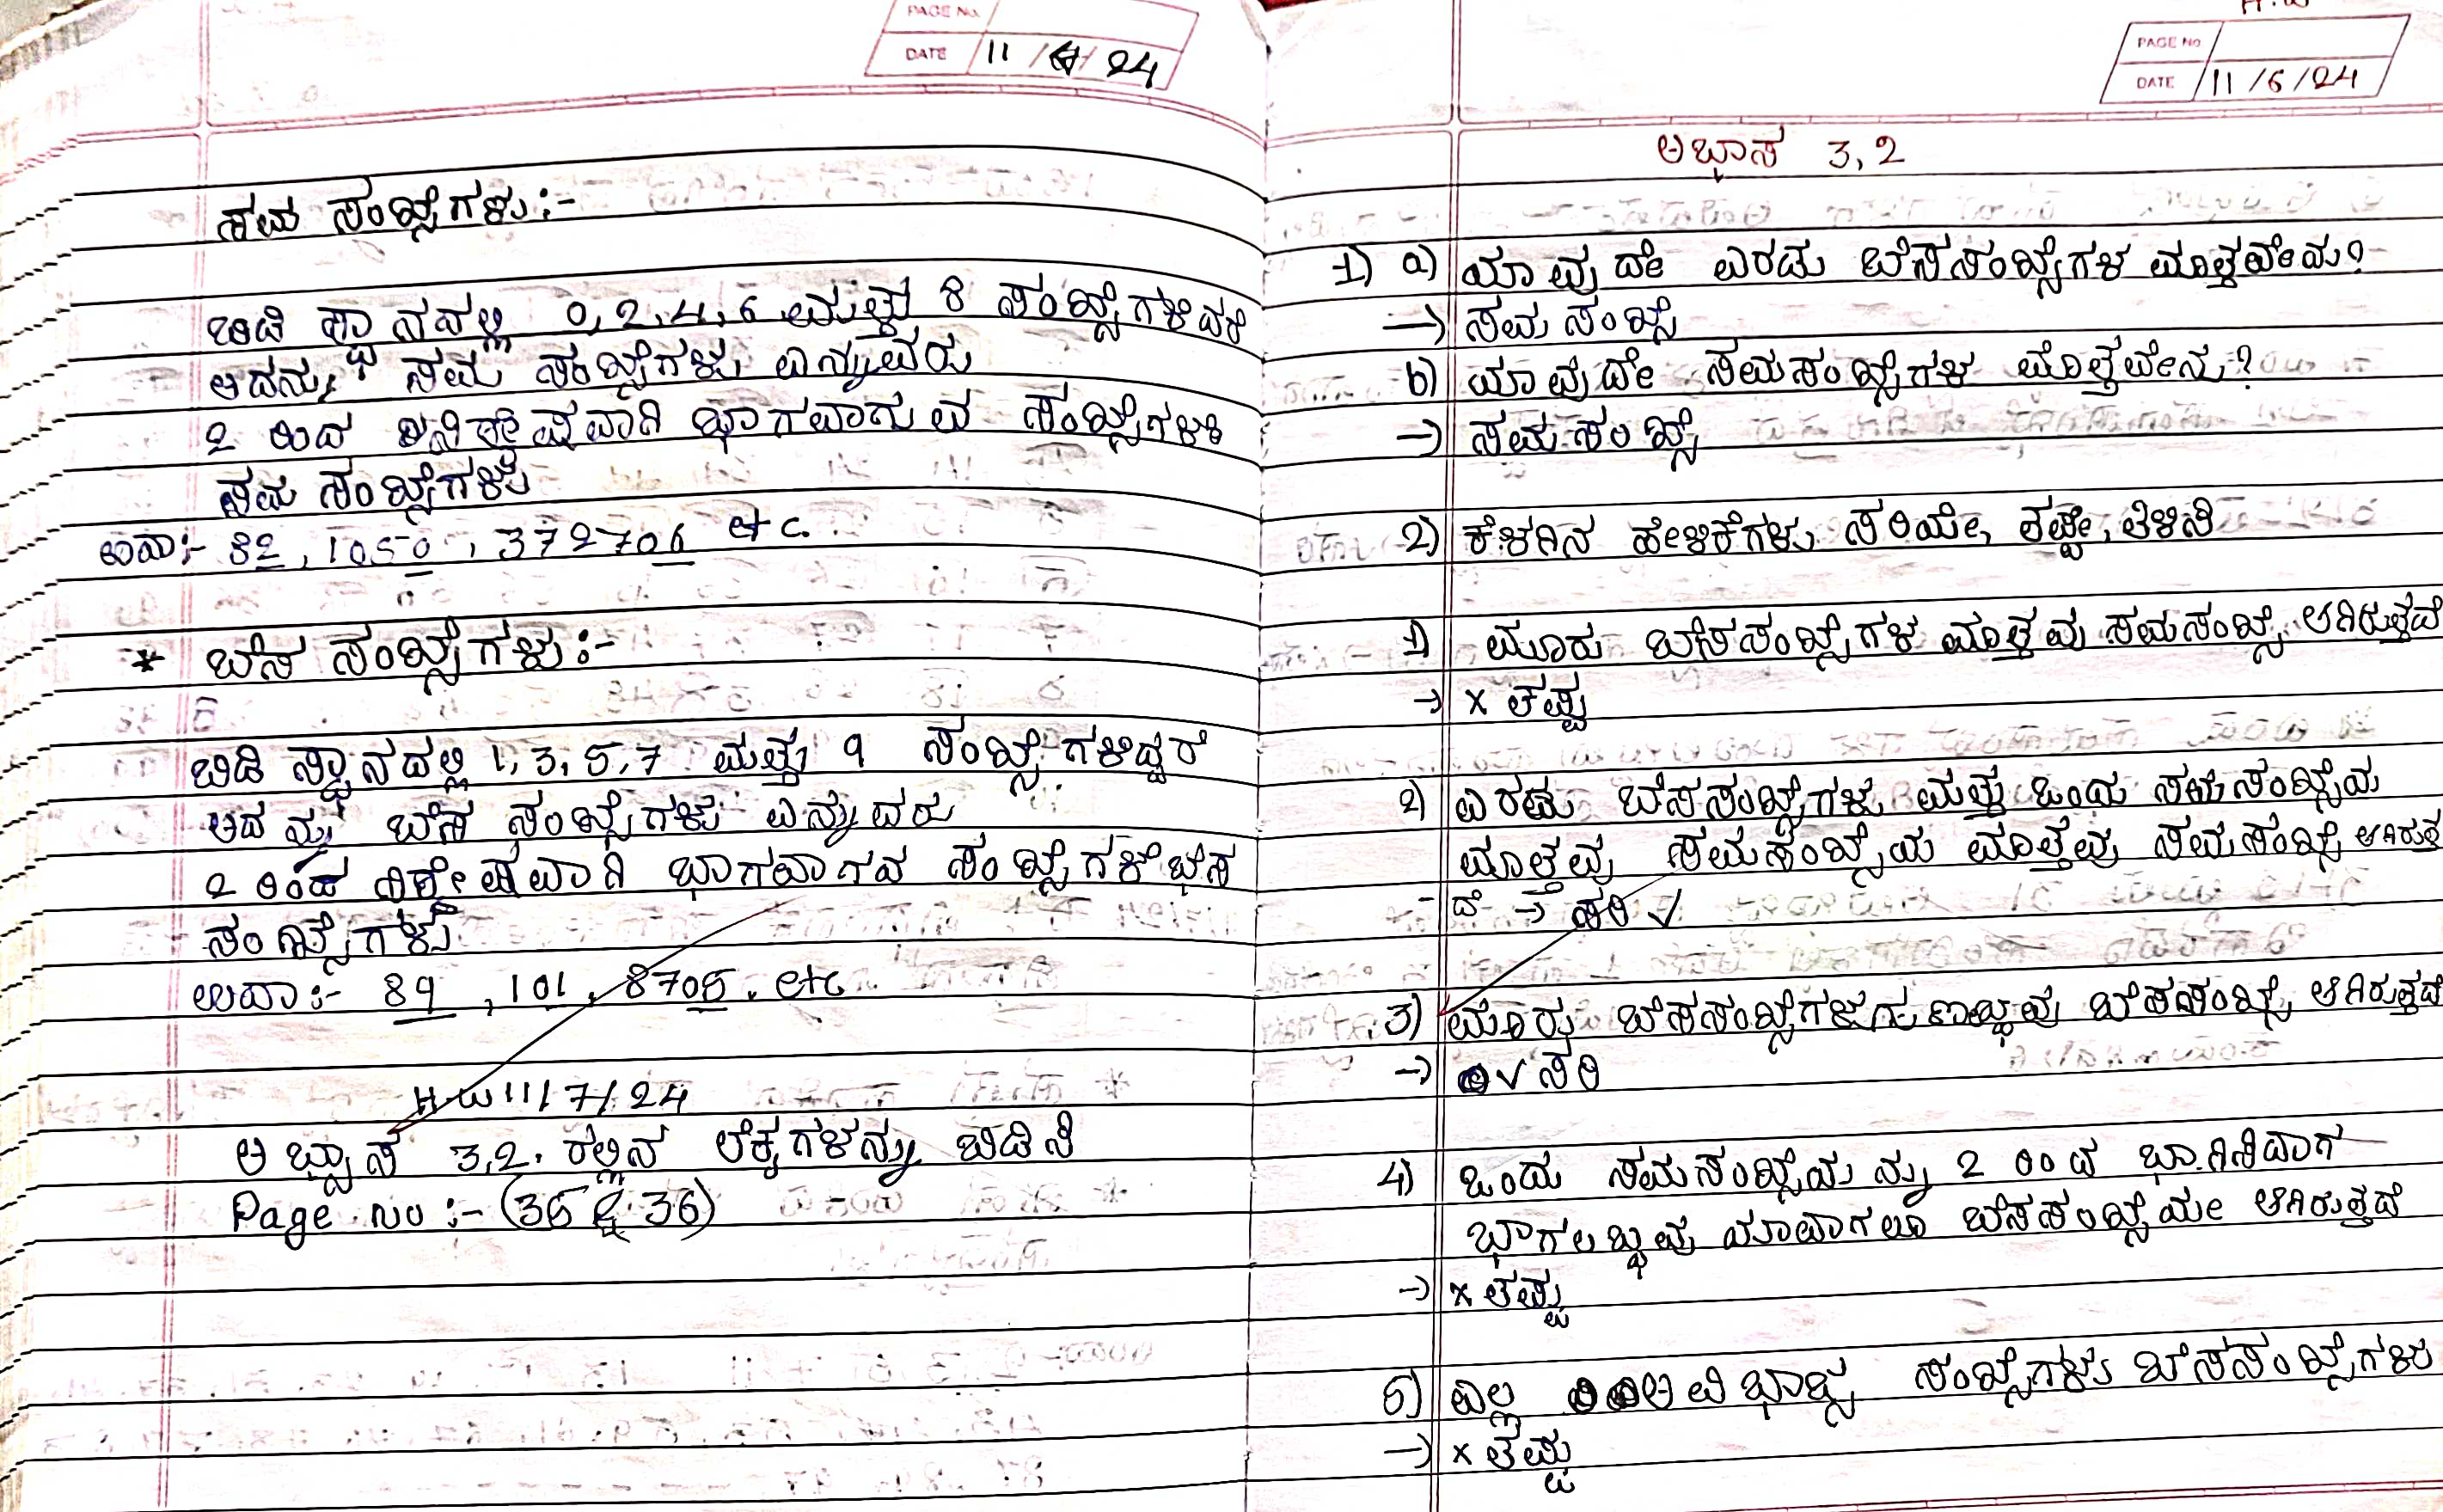 PAGE No.
DATE 11/6/24
ಸಮ ಸಂಖ್ಯೆಗಳು :-
ಬಿಡಿ ಸ್ಥಾನದಲ್ಲಿ 0, 2, 4, 6 ಮತ್ತು 8 ಸಂಖ್ಯೆಗಳಿದ್ದರೆ
ಅದನ್ನು ಸಮ ಸಂಖ್ಯೆಗಳು ಎನ್ನುವರು
2 ರಿಂದ ನಿಶ್ಶೇಷವಾಗಿ ಭಾಗವಾಗುವ ಸಂಖ್ಯೆಗಳೇ
ಸಮ ಸಂಖ್ಯೆಗಳು
ಉದಾ:- 82, 1050, 372706 etc.
* ಬೆಸ ಸಂಖ್ಯೆಗಳು :-
ಬಿಡಿ ಸ್ಥಾನದಲ್ಲಿ 1, 3, 5, 7 ಮತ್ತು 9 ಸಂಖ್ಯೆಗಳಿದ್ದರೆ
ಅದನ್ನು ಬೆಸ ಸಂಖ್ಯೆಗಳು ಎನ್ನುವರು
2 ರಿಂದ ನಿಶ್ಶೇಷವಾಗಿ ಭಾಗವಾಗದ ಸಂಖ್ಯೆಗಳೇ ಬೆಸ
ಸಂಖ್ಯೆಗಳು
ಉದಾ:- 89, 101, 8705. etc
H.W 11/7/24
ಅಭ್ಯಾಸ 3,2. ರಲ್ಲಿನ ಲೆಕ್ಕಗಳನ್ನು ಬಿಡಿಸಿ
Page no :- (35 & 36)
H.W
PAGE No.
DATE 11/6/24
ಅಭ್ಯಾಸ 3,2
1) a) ಯಾವುದೇ ಎರಡು ಬೆಸಸಂಖ್ಯೆಗಳ ಮೊತ್ತವೇನು?
→ ಸಮ ಸಂಖ್ಯೆ
b) ಯಾವುದೇ ಸಮಸಂಖ್ಯೆಗಳ ಮೊತ್ತವೇನು?
→ ಸಮಸಂಖ್ಯೆ
2) ಕೆಳಗಿನ ಹೇಳಿಕೆಗಳು ಸರಿಯೇ, ತಪ್ಪೇ, ತಿಳಿಸಿ
1) ಮೂರು ಬೆಸಸಂಖ್ಯೆಗಳ ಮೊತ್ತವು ಸಮಸಂಖ್ಯೆ ಆಗಿರುತ್ತದೆ
→ x ತಪ್ಪು
2) ಎರಡು ಬೆಸಸಂಖ್ಯೆಗಳು ಮತ್ತು ಒಂದು ಸಮಸಂಖ್ಯೆಯ
ಮೊತ್ತವು ಸಮಸಂಖ್ಯೆಯ ಮೊತ್ತವು ಸಮಸಂಖ್ಯೆ ಆಗಿರುತ್ತ
- ದೆ → ಸರಿ ✓
3) ಮೂರು ಬೆಸಸಂಖ್ಯೆಗಳ ಗುಣಲಬ್ಧವು ಬೆಸಸಂಖ್ಯೆ ಆಗಿರುತ್ತದೆ
→ ✓ ಸರಿ
4) ಒಂದು ಸಮಸಂಖ್ಯೆಯನ್ನು 2 ರಿಂದ ಭಾಗಿಸಿದಾಗ
ಭಾಗಲಬ್ಧವು ಯಾವಾಗಲೂ ಬೆಸಸಂಖ್ಯೆಯೇ ಆಗಿರುತ್ತದೆ
→ x ತಪ್ಪು
5) ಎಲ್ಲ ಅವಿಭಾಜ್ಯ ಸಂಖ್ಯೆಗಳು ಬೆಸಸಂಖ್ಯೆಗಳು
→ x ತಪ್ಪು